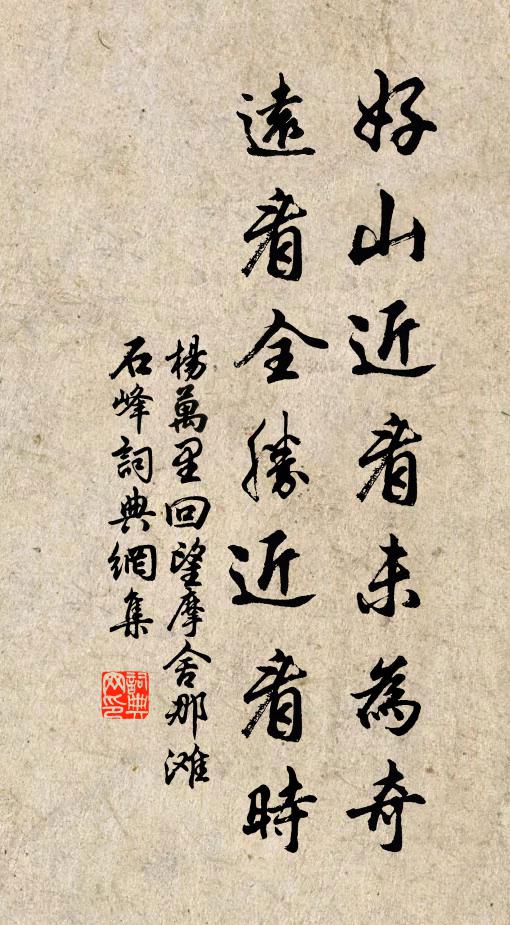 好山近看未為奇
遠看全勝近看時
楊萬里回望摩舍那滩
石峰詞典網集
詞典網印